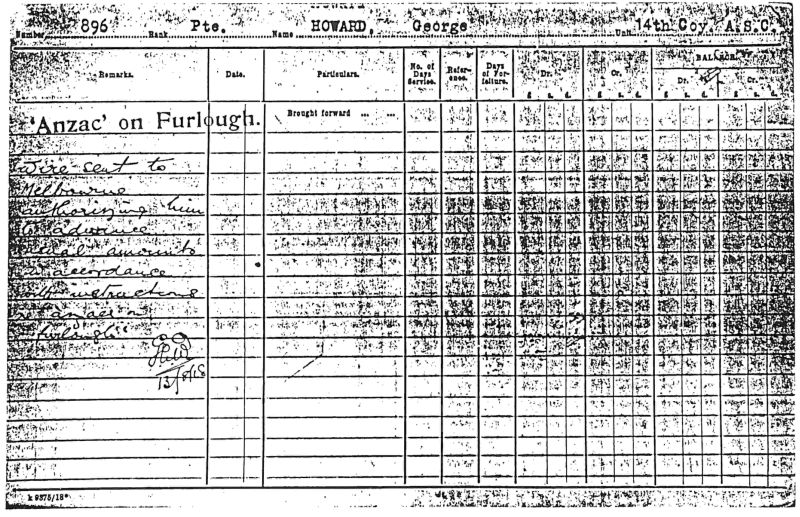 Number 896 Rank Pte. Name HOWARD, George Unit 14th Coy. A.S.C.
Remarks. Date. Particulars. No. of Days Service. Refer-ence. Days of For-feiture. Dr. Cr. BALANCE.
Dr. Cr.
£ s. d. £ s. d. £ s. d. £ s. d.
'Anzac' on Furlough. Brought forward ... ...
Wire sent to
Melbourne
authorizing him
to advance
usual amounts
in accordance
with instructions
re anzac on
furlough
13/8/18
k 9375/18